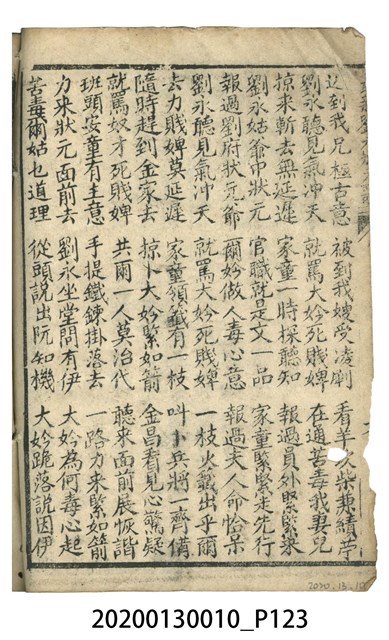 到我兄極古意 被到我嫂受凌剮 看羊火柴兼績苧
劉永聽見氣沖天 就罵大妗死賤婢 在通苦毒我妻兒
掠來斬去無延遲 家童一時探聽知 報過員外緊緊來
劉永姑爺中狀元 官職就是文一品 家童緊緊走先行
報過劉府狀元爺 爾妗做人毒心意 報過夫人命怡呆
劉永聽見氣沖天 就罵大妗死賤婢 一枝火籤出乎爾
去力賤婢莫延遲 家童領籤有一枝 叫卜兵將一齊備
隨時趕到金家去 掠卜大妗緊如箭 金昌看見心驚疑
就罵奴才死賤婢 共爾一人莫治代 聽來面前展恢諧
班頭安童有主意 手提鐵鍊掛落去 一路力來緊如箭
力來狀元面前去 劉永坐堂問有伊 大妗為何毒心起
苦毒爾姑乜道理 從頭說出阮知機 大妗跪落說因伊
20200130010_P123